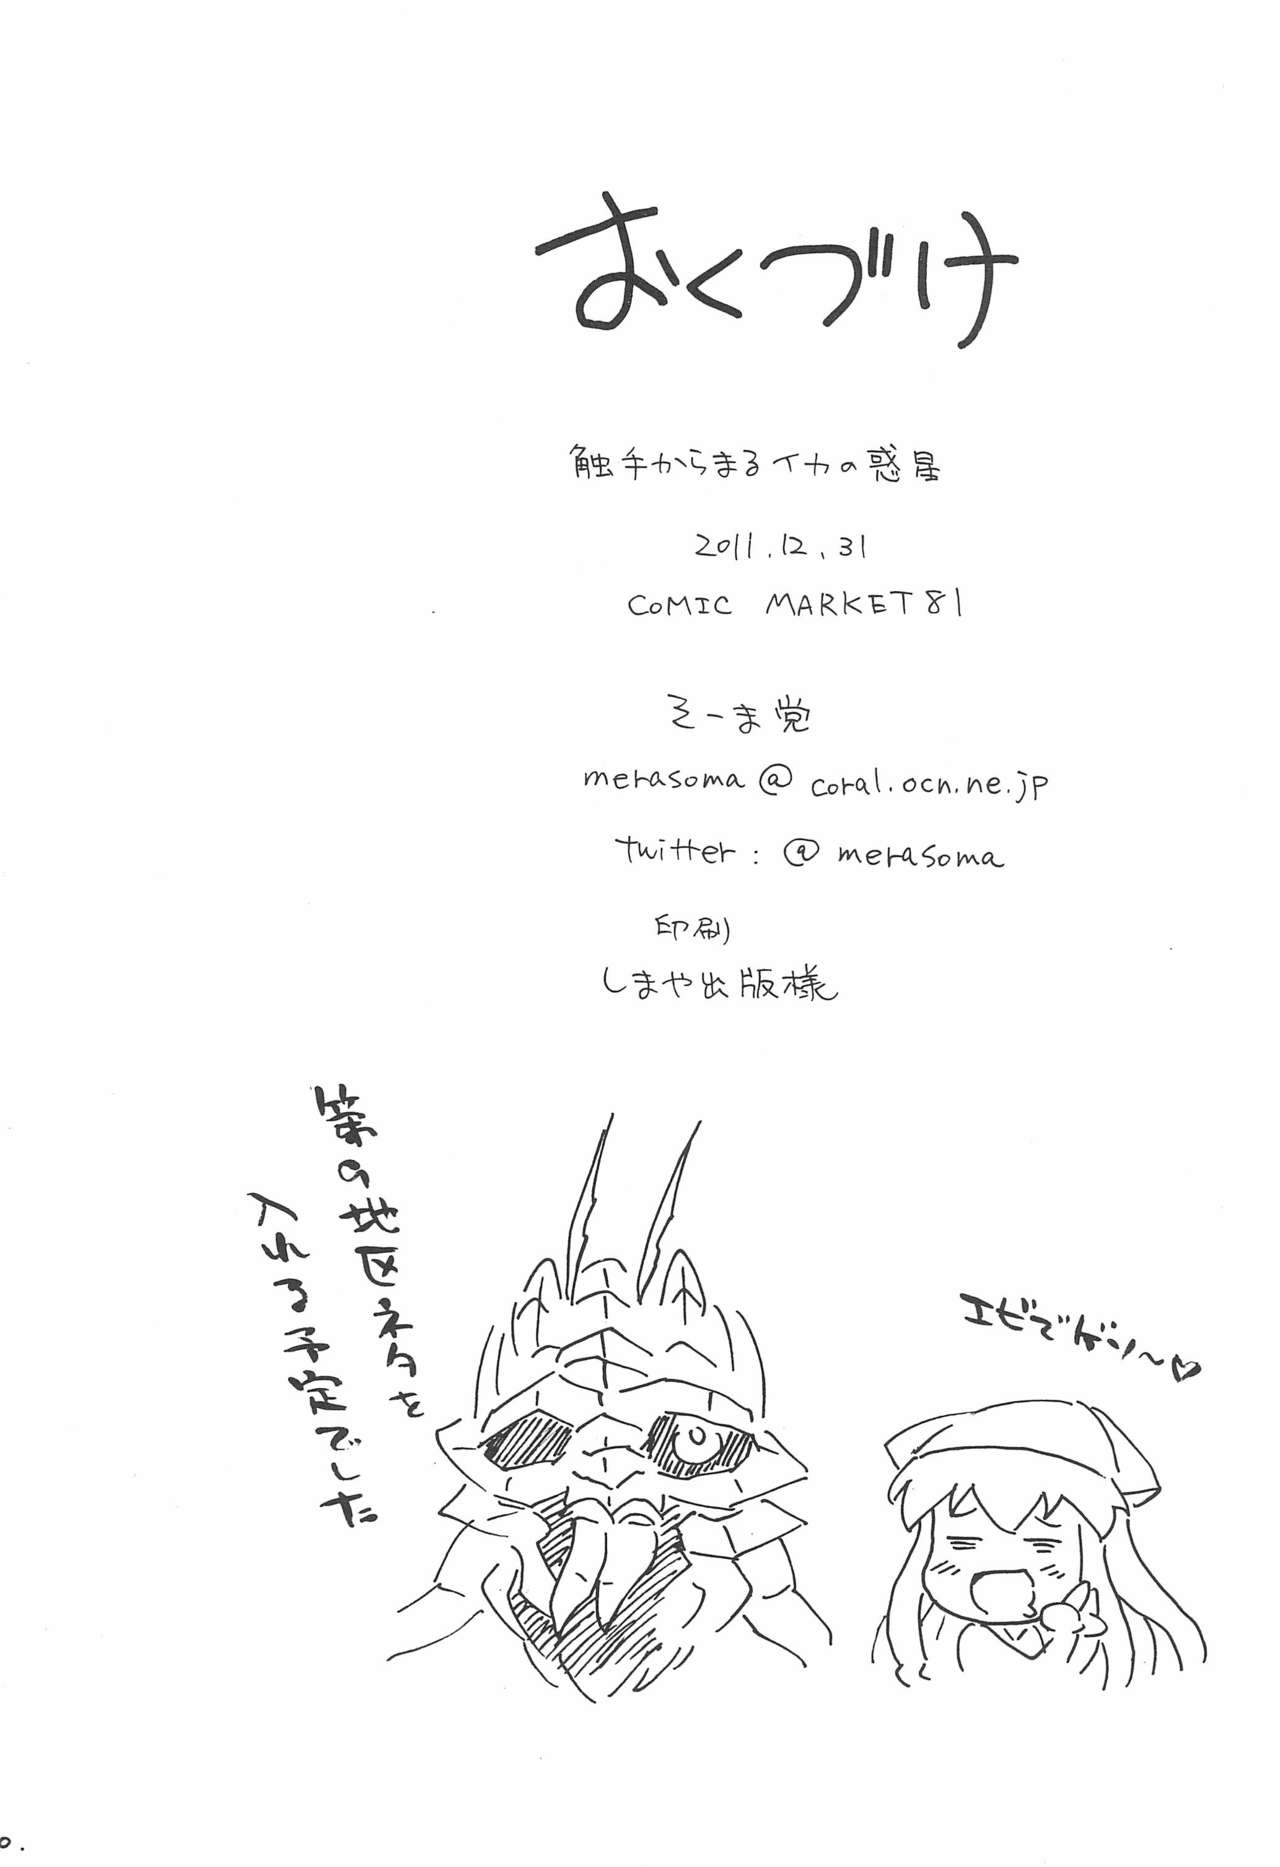 おくづけ
触手からまるイカの惑星
2011.12.31
COMIC MARKET81
そーま党
merasoma@coral.ocn.ne.jp
twitter: @merasoma
印刷
しまや出版様
エビでゲソ〜♡
第の地区ネタを
入れる予定でした
0.